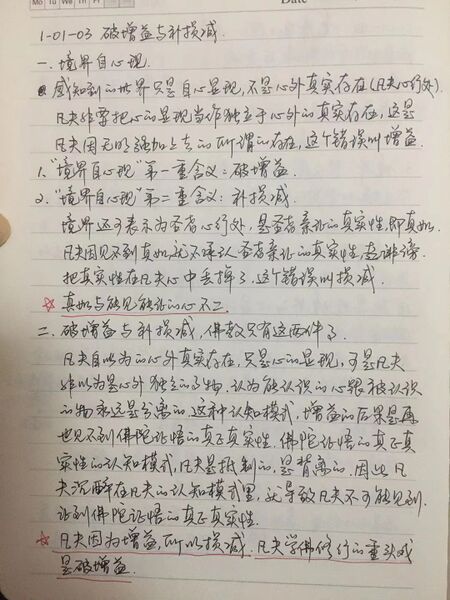 Mo Tu We Th Fr Sa Su
Date
1-01-03 破增益与补损减.
一. 境界自心现.
感知到的世界只是自心显现, 不是心外真实存在(凡夫心行处)
凡夫非要把心的显现当作独立于心外的真实存在, 这是
凡夫因无明强加上去的所谓的存在, 这个错误叫增益.
1. "境界自心现"第一重含义: 破增益.
2. "境界自心现"第二重含义: 补损减.
境界还可表示为圣者心行处, 是圣者亲证的真实性, 即真如.
凡夫因见不到真如, 就不承认圣者亲证的真实性, 甚诽谤.
把真实性在凡夫心中丢掉了. 这个错误叫损减.
☆ 真如与能见能证的心不二.
二. 破增益与补损减, 佛教只有这两件事.
凡夫自以为的心外真实存在, 只是心的显现, 可是凡夫
非以为是心外独立的事物, 认为能认识的心跟被认识
的物永远是分离的. 这种认知模式, 增益的后果是再
也见不到佛陀证悟的真正真实性. 佛陀证悟的真正真
实性的认知模式, 凡夫是抵制的, 是背离的. 因此凡
夫沉醉在凡夫的认知模式里, 就导致凡夫不可能见到.
证到佛陀证悟的真正真实性.
☆ 凡夫因为增益, 所以损减. 凡夫学佛修行的重头戏
是破增益.